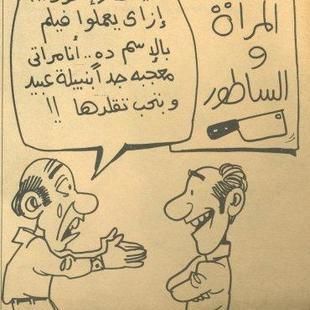 إزاى يعملوا فيلم
بالإسم ده.. أنا مراتى
معجبه جداً بنبيلة عبيد
و بتحب تقلدها !!
المرأة
و
الساطور